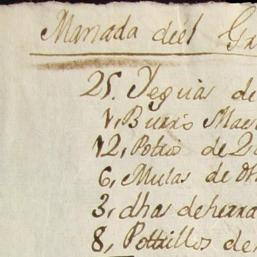 Manada del Gr
25. Yeguas de
1, Burro Maes
12, Potros de 2
6, Mulas de
3, dhas de herra
8, Potrillos de